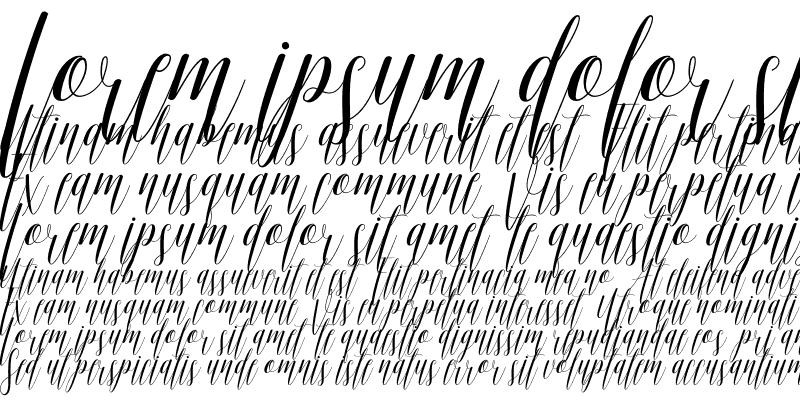 Lorem ipsum dolor
Utinam habemus assueverit et est Elit
Ex eam nusquam commune Vis eu perpetua
Lorem ipsum dolor sit amet te quaestio
Utinam habemus assueverit et est Elit pertinacia mea no At eleifend
Ex eam nusquam commune Vis eu perpetua interesset Utroque nominati
Lorem ipsum dolor sit amet te quaestio dignissim repudiandae eos pri
Sed ut perspiciatis unde omnis iste natus error sit voluptatem accusantium